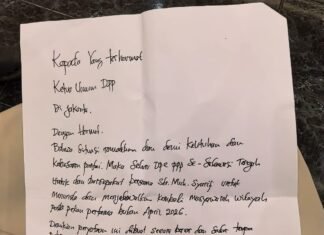 Kepada Yang terhormat
Ketua Umum DPP
Di Jakarta.
Dengan Hormat.
Bahwa situasi dan demi kebutuhan dan
partai. Maka Seluruh DPC PPP Se-Sulawesi Tengah
untuk dan bersepakat bersama Sdr. Moh. Syarif untuk
Meminta dan menjadwalkan kembali musyawarah wilayah
pada pekan pertama bulan April 2026.
Demikian pernyataan ini dibuat secara benar dan sadar tanpa